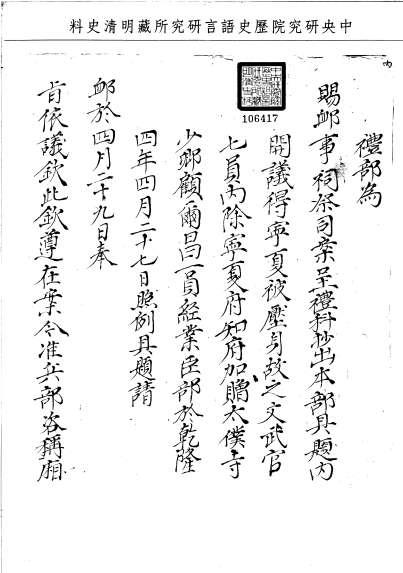 中央研究院歷史語言研究所藏明清史料
106417
內
禮部為
賜卹事祠祭司案呈禮科抄出本部具題內
開議得寧夏被壓身故之文武官
七員內除寧夏府知府加贈太僕寺
少卿顧爾昌一員經業臣部於乾隆
四年四月二十七日照例具題請
卹於四月二十九日奉
旨依議欽此欽遵在案今准兵部咨稱廂